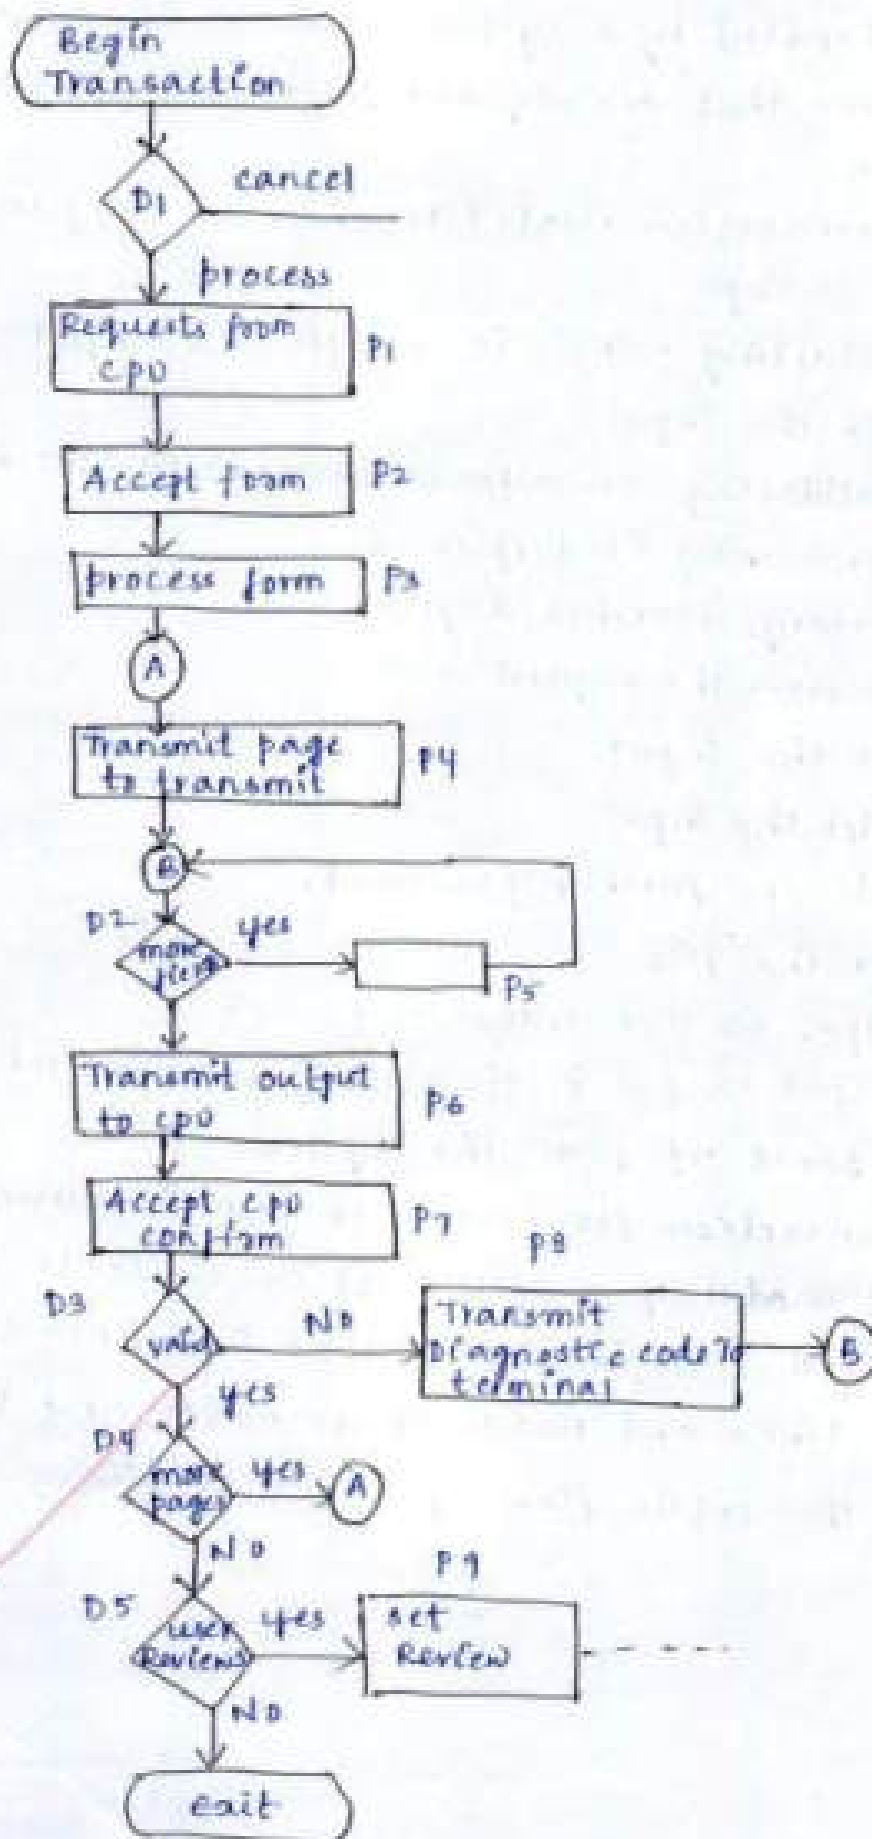 Begin
Transaction
D1
cancel
process
Requests from
CPU
P1
Accept form
P2
process form
P3
A
Transmit page
to transmit
P4
B
D2
yes
more
P5
Transmit output
to CPU
P6
Accept CPU
confirm
P7
P8
D3
valid
NO
Transmit
Diagnostic code To
terminal
B
yes
D4
more
pages
yes
A
NO
P9
D5
user
Reviews
yes
set
Review
NO
exit